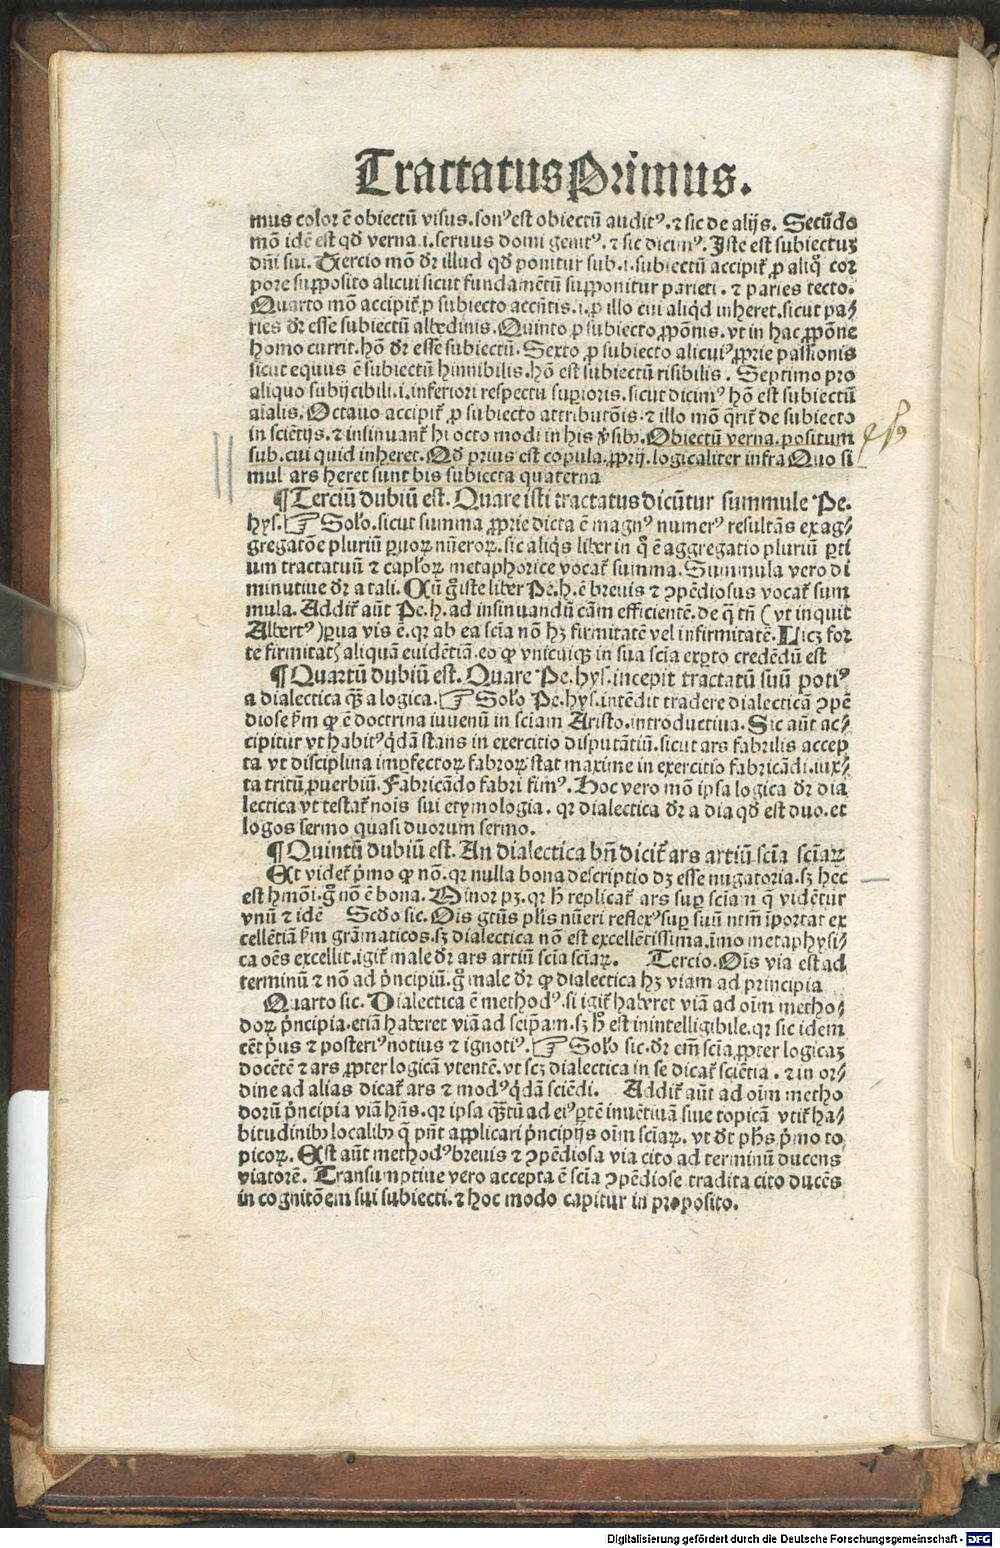 Tractatus Primus.
mus color ē obiectū visus. sonꝰ est obiectū auditꝰ. ⁊ sic de alijs. Secūdo
mō idē est qď verna .i. seruus domi genitꝰ. ⁊ sic dicimꝰ. Iste est subiectuꝫ
dn̄i sui. Tercio mō dr̄ illud qď ponitur sub .i. subiectū accipit᷑ ꝓ aliq̊ cor
pore supposito alicui sicut fundamētū supponitur parieti. ⁊ paries tecto.
Quarto mō accipit᷑ ꝓ subiecto accn̄tis .i. ꝓ illo cui aliqď inheret. sicut pa⸗
ries dr̄ esse subiectū albedinis. Quinto ꝓ subiecto ꝓpōnis. vt in hac ꝓpōne
homo currit. hō dr̄ esse subiectū. Sexto ꝓ subiecto alicuiꝰ ꝓprie passionis
sicut equus ē subiectū hinnibilis. hō est subiectū risibilis. Septimo pro
aliquo subijcibili .i. inferiori respectu suꝑioris. sicut dicimꝰ hō est subiectū
aīalis. Octauo accipit᷑ ꝓ subiecto attributōis. ⁊ illo mō q̄rit᷑ de subiecto
in sciētijs. ⁊ insinuant᷑ hi octo modi in his v̓sibꝫ. Obiectū verna. positum
sub. cui quid inheret. Qď prius est copula. ꝓprij. logicaliter infra Quo si
mul ars heret sunt bis subiecta quaterna
¶ Terciū dubiū est. Quare isti tractatus dicūtur summule Pe.
hys. ☞ Solo. sicut summa ꝓprie dicta ē magnꝰ numerꝰ resultās ex ag⸗
gregatōe pluriū ꝑuoꝝ nūeroꝝ. sic aliqs liber in q̊ ē aggregatio pluriū ꝑti
um tractatuū ⁊ capl'oꝝ metaphorice vocat᷑ summa. Summula vero di
minutiue dr̄ a tali. Cū g̊ iste liber Pe. h. ē breuis ⁊ ꝯpēdiosus vocat᷑ sum
mula. Addit᷑ aūt Pe. h. ad insinuandū cām efficientē. de q̄ tn̄ (vt inquit
Albertꝰ) ꝑua vis ē. qr ab ea scīa nō hꝫ firmitatē vel infirmitatē. Licꝫ for
te firmitatꝭ aliquā euidētiā. eo ꝙ vnicuiqꝫ in sua scīa exꝑto credēdū est
¶ Quartū dubiū est. Quare Pe. hys. incepit tractatū suū potiꝰ
a dialectica qꝫ a logica. ☞ Solo Pe. hys. intēdit tradere dialecticā ꝯpē
diose s̓m ꝙ ē doctrina iuuenū in sciam Aristo. introductiua. Sic aūt ac⸗
cipitur vt habitꝰ q̓dā stans in exercitio disputātiū. sicut ars fabrilis accep
ta vt disciplina imꝑfectoꝝ fabroꝝ stat maxime in exercitio fabricādi. iux⸗
ta tritū ꝓuerbiū. Fabricādo fabri fimꝰ. Hoc vero mō ipsa logica dr̄ dia
lectica vt testat᷑ nois sui etymologia. qr dialectica dr̄ a dia qď est duo. et
logos sermo quasi duorum sermo.
¶ Quintū dubiū est. An dialectica bn̄ dicit᷑ ars artiū scīa scīaꝝ
Et videt᷑ p̓mo ꝙ nō. qr nulla bona descriptio dꝫ esse nugatoria. sꝫ hec
est hmōi. g̊ nō ē bona. Minor pꝫ. qr h̄ replicat᷑ ars suꝑ sciam q̄ vidētur
vnū ⁊ idē Scďo sic. Ois gtūs pl'is nūeri reflexꝰ suꝑ suū ntm̄ īportat ex
cellētiā s̓m grāmaticos. sꝫ dialectica nō est excellētissima. īmo metaphysi⸗
ca oēs excellit. igit᷑ male dr̄ ars artiū scia sciaꝝ. Tercio. Oīs via est ad
terminū ⁊ nō ad p̓ncipiū. g̊ male dr̄ ꝙ dialectica hꝫ viam ad principia
Quarto sic. Dialectica ē methodꝰ. si igit᷑ haberet viā ad oīm metho⸗
doꝝ p̓ncipia. etiā haberet viā ad seip̄am. sꝫ h̄ est inintelligibile. qr sic idem
eēt p̓us ⁊ posteriꝰ notius ⁊ ignotiꝰ. ☞ Solo sic. dr̄ em̄ scīa ꝓpter logicaꝫ
docētē ⁊ ars ꝓpter logicā vtentē. vt scꝫ dialectica in se dicat᷑ sciētia. ⁊ in or⸗
dine ad alias dicat᷑ ars ⁊ modꝰ q̓dā sciēdi. Addit᷑ aūt ad oīm metho
dorū p̓ncipia viā hn̄s. qr ipsa qꝫtū ad eiꝰ ꝑtē inuētiuā siue topicā vtit᷑ ha⸗
bitudinibꝫ localibꝫ q̄ pn̄t applicari p̓ncipijs oīm scīaꝝ. vt dr̄ ph̄s p̓mo to
picoꝝ. Est aūt methodꝰ breuis ⁊ ꝯpēdiosa via cito ad terminū ducens
viatorē. Transumptiue vero accepta ē scīa ꝯpēdiose tradita cito ducēs
in cognitōem sui subiecti. ⁊ hoc modo capitur in proposito.
Digitalisierung gefördert durch die Deutsche Forschungsgemeinschaft - DFG